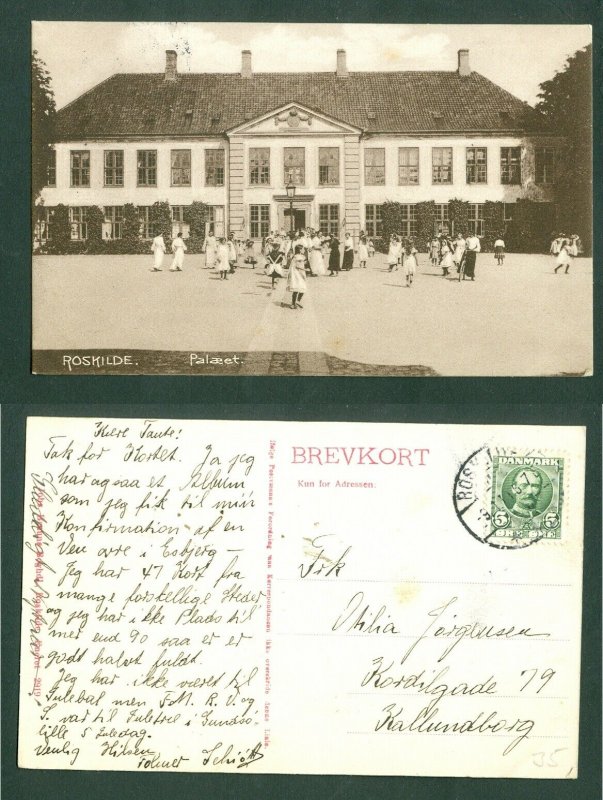 ROSKILDE. Palæet.
Kære Tante!
Tak for Kortet. Ja jeg
har ogsaa et Album
som jeg fik til min
Konfirmation af en
Ven ovre i Esbjerg –
Jeg har 47 Kort fra
mange forskellige Steder
og jeg har ikke Plads til
mer end 90 saa er er
godt halvt fuldt.
Jeg har ikke været til
Julebal men F. M. R. V. og
S. var til Juletræ i Gundsø-
lille 5 Juledag.
Venlig Hilsen
BREVKORT
Kun for Adressen.
ROSK
DANMARK
5 5
Frk
Otilia Jørgensen
Kordilgade 79
Kallundborg